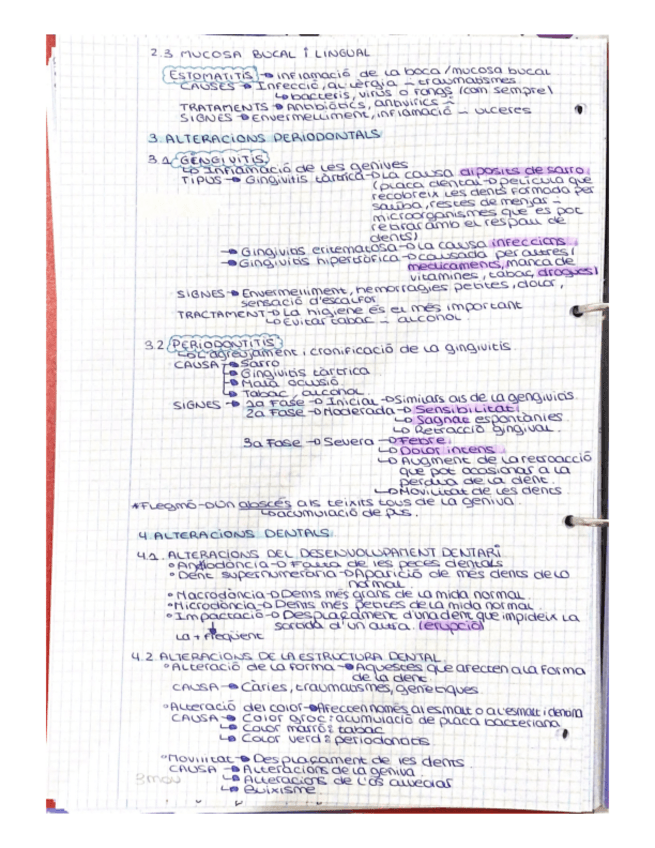 2.3 MUCOSA BUCAL I LINGUAL
ESTOMATITIS → inflamació de la boca / mucosa bucal
CAUSES → Infecció, al·lèrgia – traumatismes
↳ bacteris, virus o fongs (com sempre)
TRATAMENTS → Antibiòtics, antivírics –
SIGNES → Envermelliment, inflamació – úlceres
3. ALTERACIONS PERIODONTALS
3.1 GENGIVITIS
↳ Inflamació de les genives
TIPUS → Gingivitis tàrtrica → La causa diposits de sarro.
(placa dental → película que
recobreix les dents formada per
saliba, restes de menjar –
microorganismes que es pot
retirar amb el respall de
dents)
→ Gingivitis eritematosa → La causa infeccions.
→ Gingivitis hipertròfica → causada per altres (
medicaments, manca de
vitamines, tabac, drogues)
SIGNES → Envermelliment, hemorràgies petites, dolor,
sensació d'escalfor
TRACTAMENT → La higiene és el més important
↳ Evitar tabac – alcohol.
3.2 PERIODONTITIS
↳ L'agreujament i cronificació de la gingivitis.
CAUSA → Sarro
→ Gingivitis tàrtrica
→ Mala oclusió
↳ Tabac, alcohol
SIGNES → 1a Fase → Inicial → Similars als de la gengivitis
2a Fase → Moderada → Sensibilitat
↳ Sagnat espontànies
↳ Retracció gingival.
3a Fase → Severa → Febre.
↳ Dolor intens
↳ Augment de la retroacció
que pot ocasionar a la
pèrdua de la dent.
↳ Movilitat de les dents
*FLEGMÓ → Un abscés als teixits tous de la geniva.
↳ acumulació de pus.
4. ALTERACIONS DENTALS
4.1. ALTERACIONS DEL DESENVOLUPAMENT DENTARI
° Anodòncia → Falta de les peces dentals
° Dent supernumerària → Aparició de més dents de lo
normal.
° Macrodòncia → Dents més grans de la mida normal
° Microdòncia → Dents més petites de la mida normal
° Impactació → Desplaçament d'una dent que impideix la
sortida d'un altra. (erupció)
La + freqüent
4.2. ALTERACIONS DE LA ESTRUCTURA DENTAL
° Alteració de la forma → Aquestes que afecten a la forma
de la dent.
CAUSA → Càries, traumatismes, genetiques
° Alteració del color → Afecten només al esmalt o a l'esmalt i dentina
CAUSA → Color groc: acumulació de placa bacteriana
↳ Color marró: tabac
↳ Color verd: periodontitis
° Movilitat → Desplaçament de les dents.
CAUSA → Alteracions de la geniva
↳ Alteracions de l'os alveolar
↳ Bruixisme